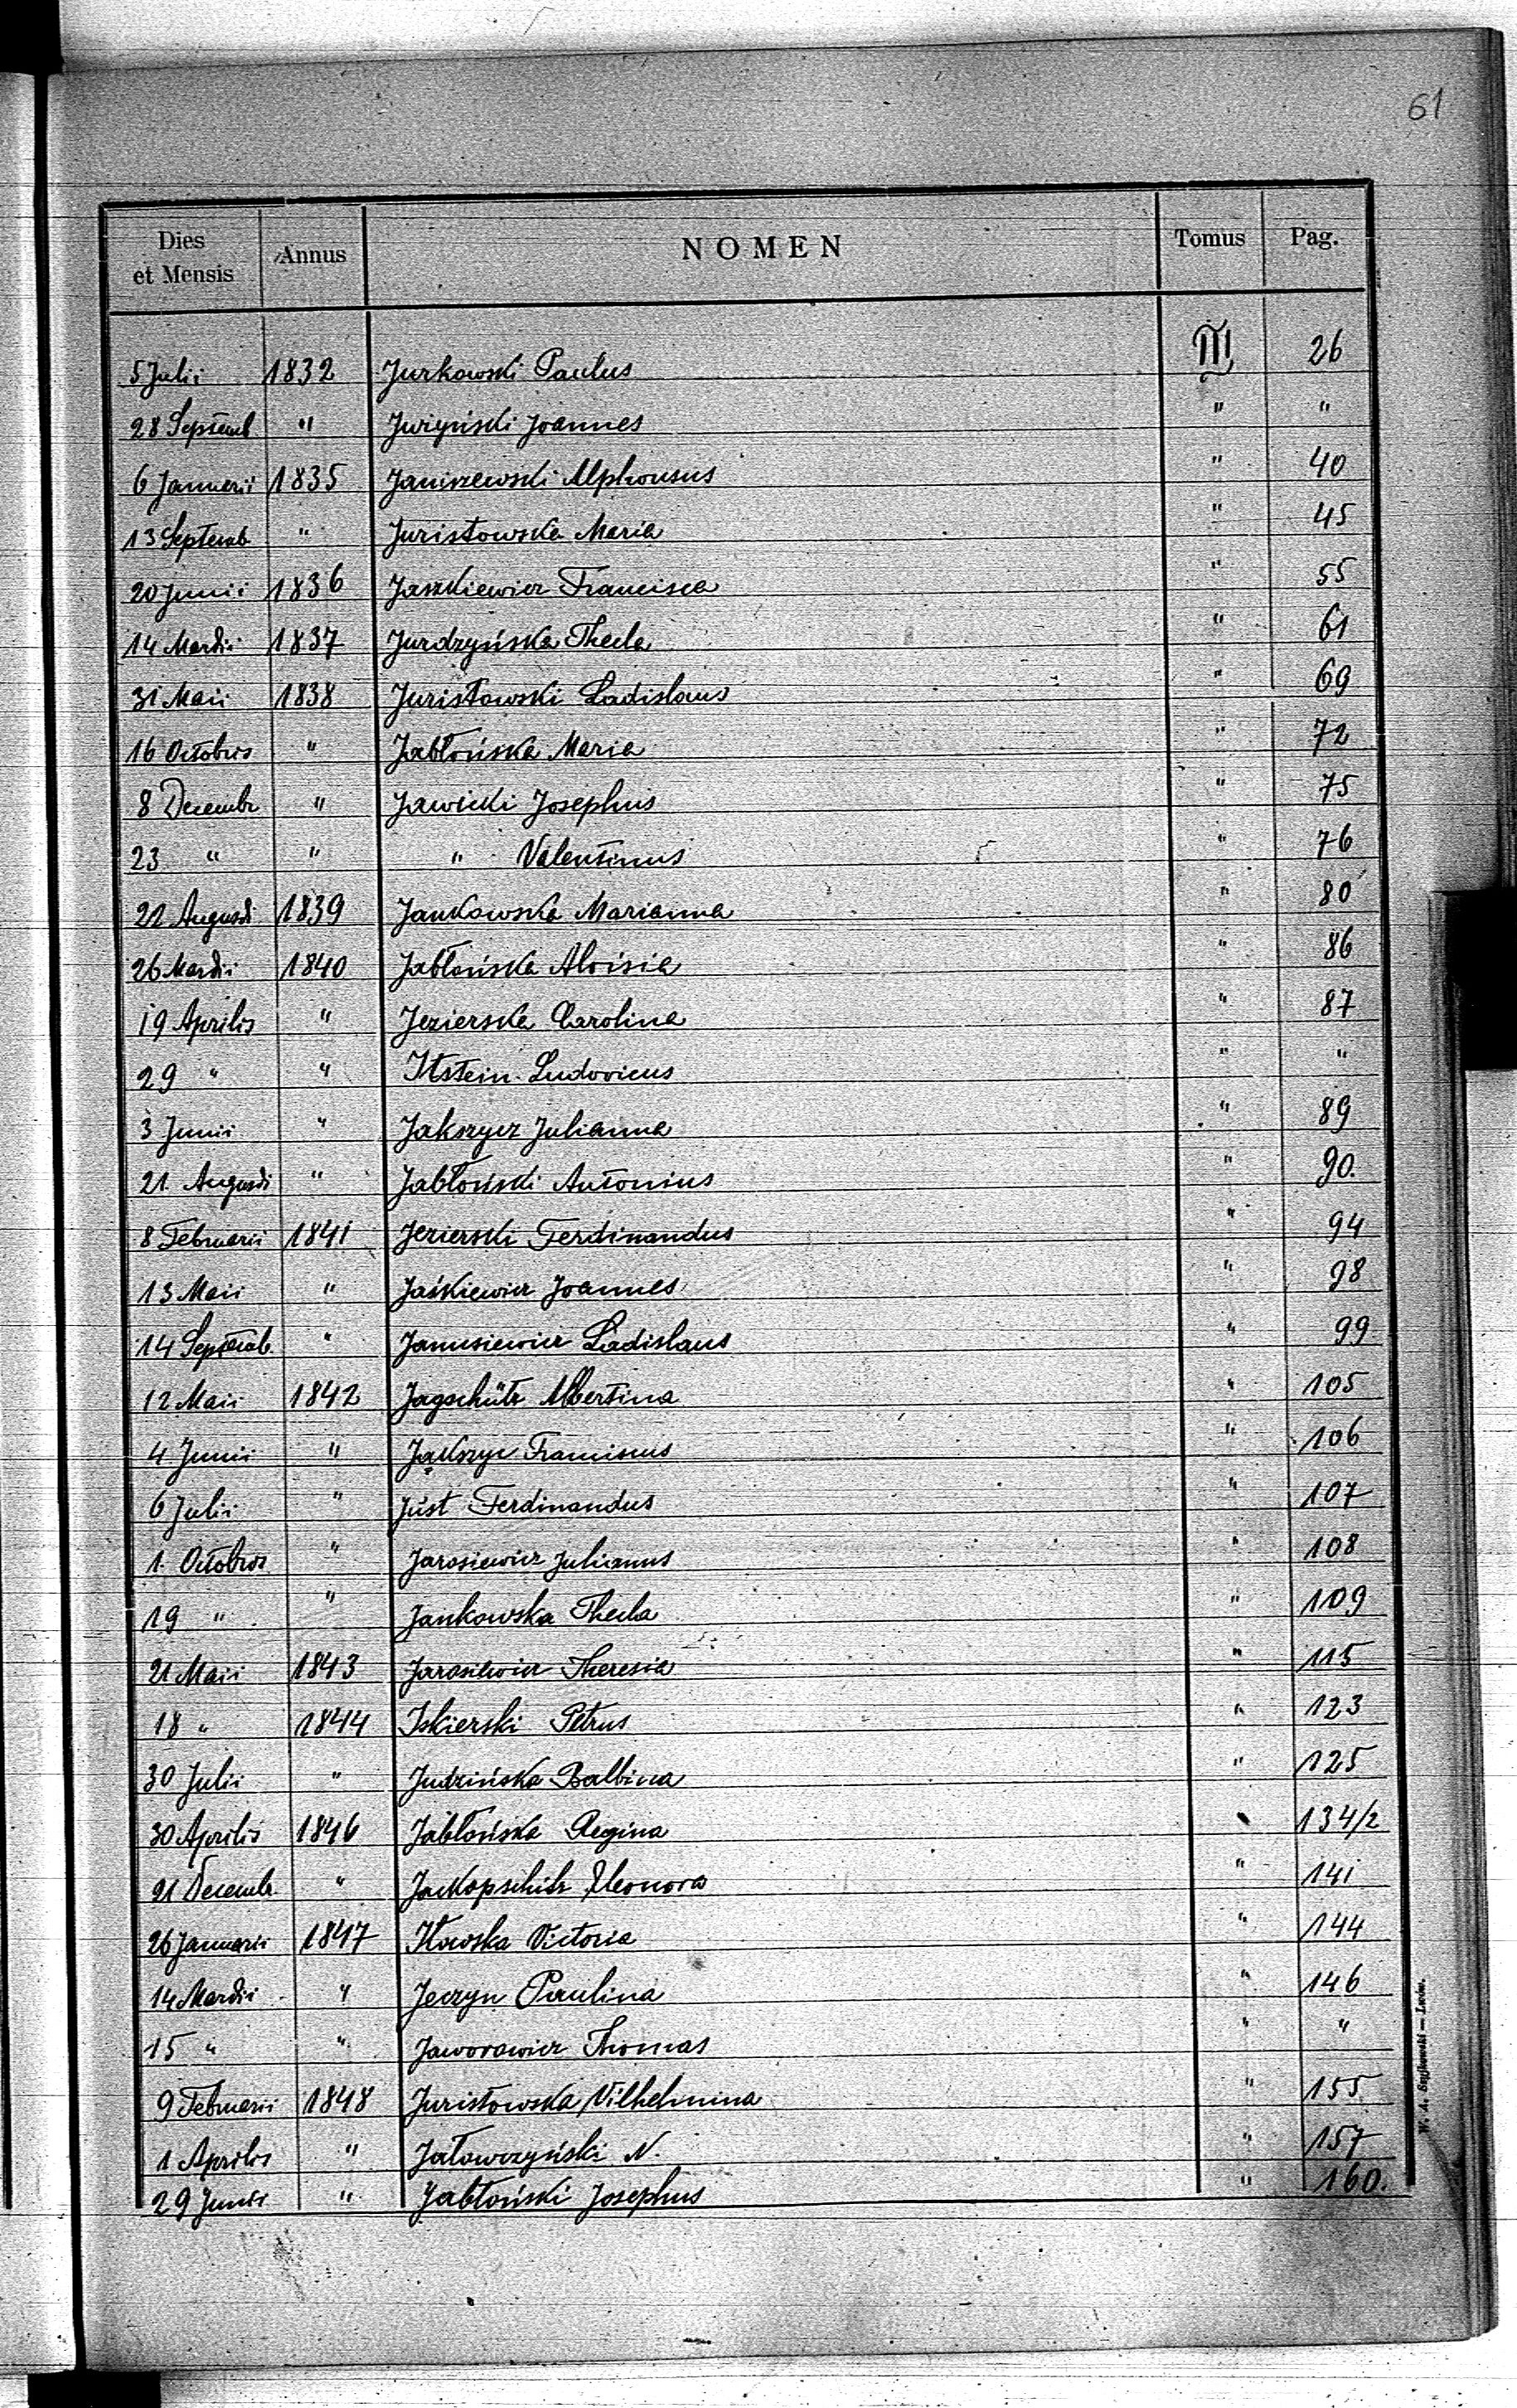 61
Dies et Mensis Annus NOMEN Tomus Pag.
5 Julii 1832 Jurkowski Paulus III 26
28 Septemb. " Juiyński Joannes " "
6 Januarii 1835 Janiszewski Alphonsus " 40
13 Septemb. " Juristowska Maria " 45
20 Junii 1836 Jaszkiewicz Francisca " 55
14 Martii 1837 Jurdzyńska Thecla " 61
31 Maii 1838 Juristowski Ladislaus " 69
16 Octobris " Jabłońska Maria " 72
8 Decembr " Jawicki Josephus " 75
23 " " " Valentinus " 76
21 Augusti 1839 Jankowska Marianna " 80
26 Martii 1840 Jabłońska Aloisia " 86
19 Aprilis " Jezierska Carolina " 87
29 " " Itstein Ludovicus " "
3 Junii " Jakszycz Julianna " 89
21. Augusti " Jabłoński Antonius " 90.
8 Februarii 1841 Jezierski Ferdinandus " 94
13 Maii " Jaśkiewicz Joannes " 98
14 Septemb. " Janusiewicz Ladislaus " 99
12 Maii 1842 Jagschütz Albertina " 105
4 Junii " Jakszyc Franciscus " 106
6 Julii " Just Ferdinandus " 107
1. Octobris " Jarosiewicz Julianus " 108
19 " " Jankowska Thecla " 109
21 Maii 1843 Jarosiewicz Theresia " 115
18 " 1844 Iskierski Petrus " 123
30 Julii " Judzińska Balbina " 125
30 Aprilis 1846 Jabłońska Regina " 134/2
21 Decembr. " Jackopschitz Eleonora " 141
26 Januarii 1847 Iłowska Victoria " 144
14 Martii " Jeczyn Paulina " 146
15 " " Jaworowicz Thomas " "
9 Februarii 1848 Juristowska Vilhelmina " 155
1 Aprilis " Jałowczyński N. " 157
29 Junii " Jabłoński Josephus " 160.
W. A. Szyjkowski — Lwów.